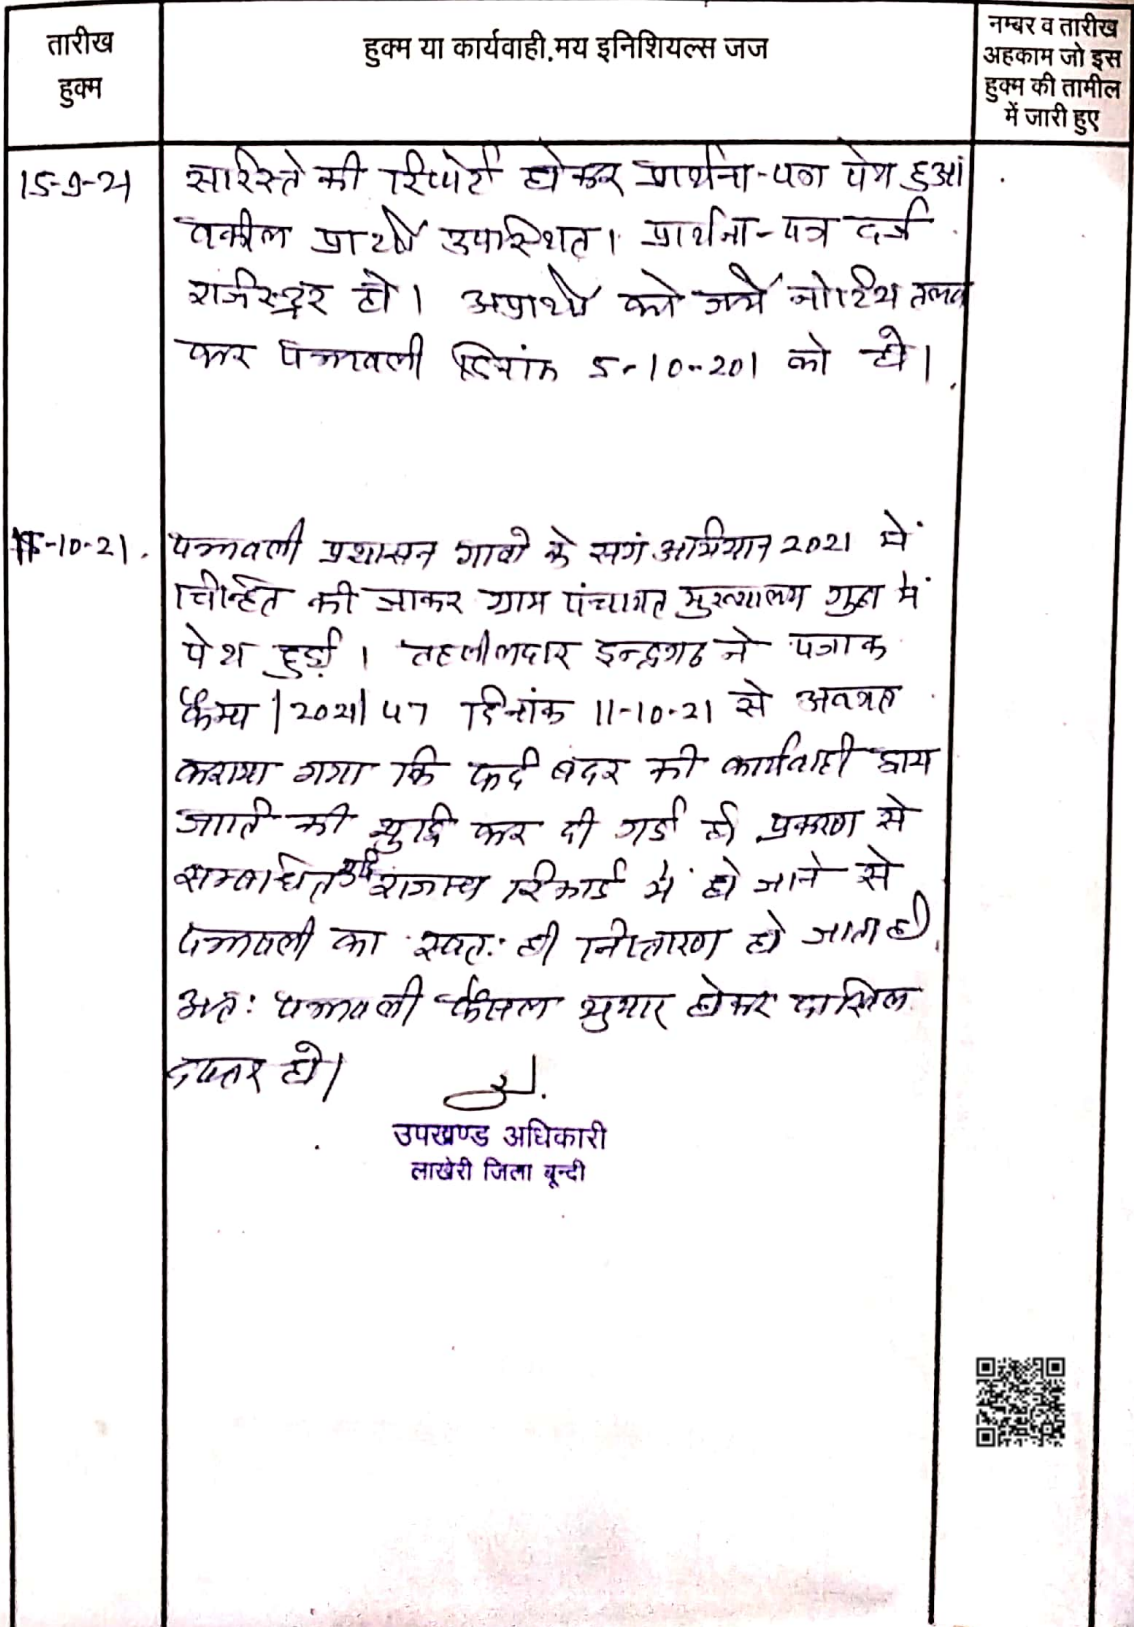 तारीख
हुक्म
हुक्म या कार्यवाही.मय इनिशियल्स जज
नम्बर व तारीख
अहकाम जो इस
हुक्म की तामील
में जारी हुए
15-9-21
सरिस्ते की रिपोर्ट होकर प्रार्थना-पत्र पेश हुआ
वकील प्रार्थी उपस्थित। प्रार्थना-पत्र दर्ज
रजिस्टर हो। अप्रार्थी को जर्ये नोटिस तलब
कर पत्रावली दिनांक 5-10-201 को हो।
-10-21.
पत्रावली प्रशासन गावो के संग अभियान 2021 में
चिन्हित की जाकर ग्राम पंचायत मुख्यालय गुढा में
पेश हुई। तहसीलदार इन्द्रगढ ने पत्राक
कैम्प/2021/47 दिनांक 11-10-21 से अवगत
कराया गया कि फर्द बदर की कार्यवाही
जाति की शुद्धि कर दी गई है। प्रकरण से
सम्बन्धित राजस्व रिकार्ड में हो जाने से
पत्रावली का स्वत: ही निस्तारण हो जाता है।
अत: पत्रावली फैसल शुमार होकर दाखिल
दफ्तर हो।
उपखण्ड अधिकारी
लाखेरी जिला बून्दी